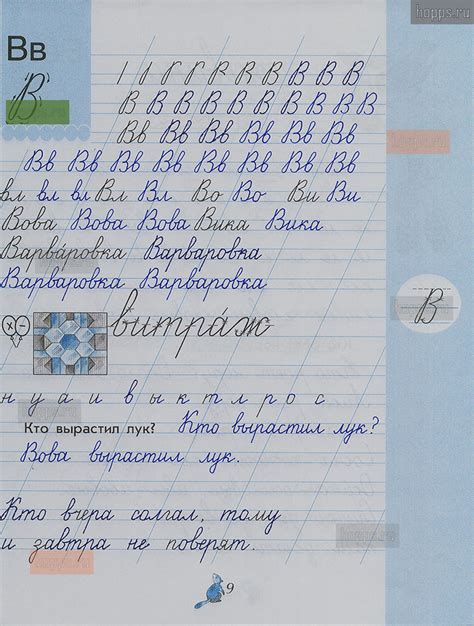 hopps.ru
Вв
В
В В В В
В В В В В В В В В В
Вв Вв Вв Вв Вв Вв
Вв Вв Вв Вв Вв Вв Вв
вл вл вл Вл Вл Во Во Ви Ви
Вова Вова Вова Вика Вика
Варва́ровка Варваровка
Варваровка Варваровка
витра́ж
В
н у а и в ы к т л р о с
Кто вырастил лук? Кто вырастил лук?
Вова вырастил лук.
Кто вчера солгал, тому
и завтра не поверят.
hopps.ru
9